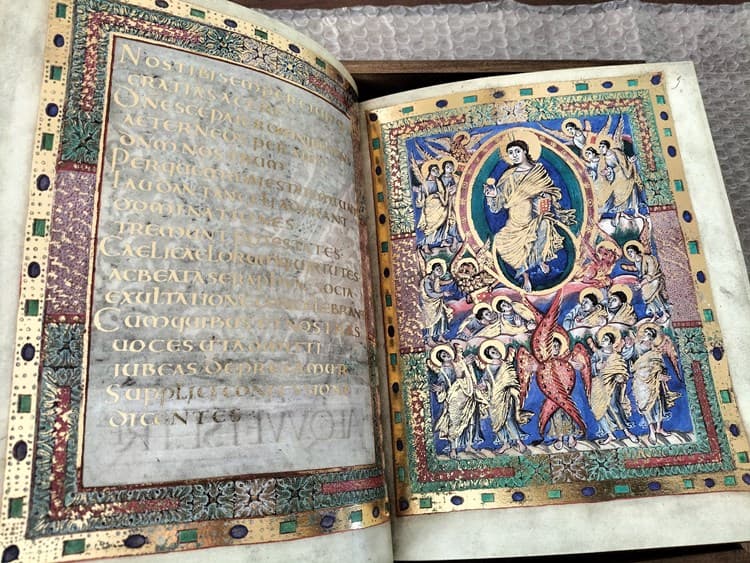 NOS TIBI SEMPER
GRATIAS
DNE SCE PATER
AETERNE DS PER
DNM NOSTRUM
PER QUEM MAIESTATEM
LAUDANT ANGELI ADORANT
DOMINATIONES
TREMUNT POTESTATES
CAELI CAELORUMQUE UIRTUTES
AC BEATA SERAPHIM SOCIA
EXULTATIONE CONCELEBRANT
CUM QUIBUS ET NOSTRAS
UOCES UT ADMITTI
IUBEAS DEPRECAMUR
SUPPLICI CONFESSIONE
DICENTES